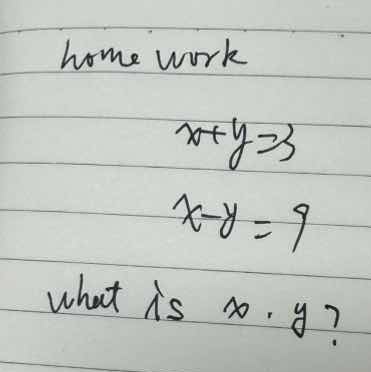 home work
x+y=3
x-y=9
what is x.y?